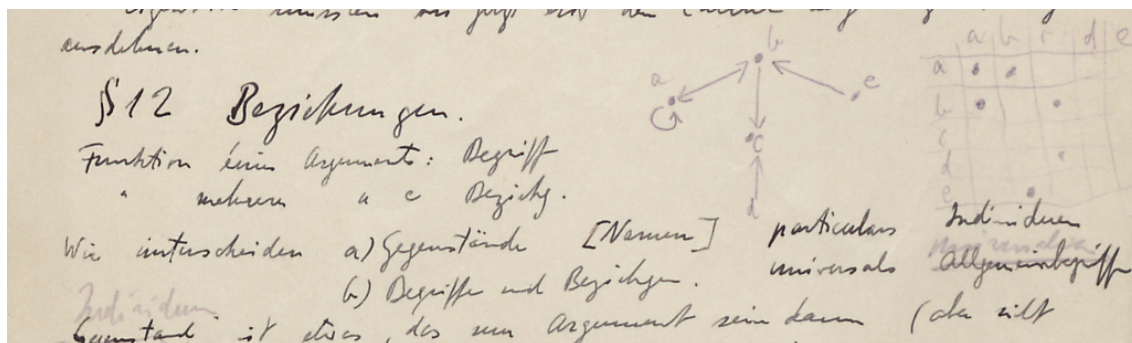 ausdehnen.
§12 Beziehungen.
Funktion eines Arguments: Begriff
" mehrerer " : Beziehg.
Wir unterscheiden a) Gegenstände [Namen] particulars Individuen
b) Begriffe und Beziehgen. universals Allgemeinbegriffe
Individuum
Gegenstand ist etwas, das nur Argument sein kann (aber nicht
b
a
e
c
d
a b c d e
a
b
c
d
e